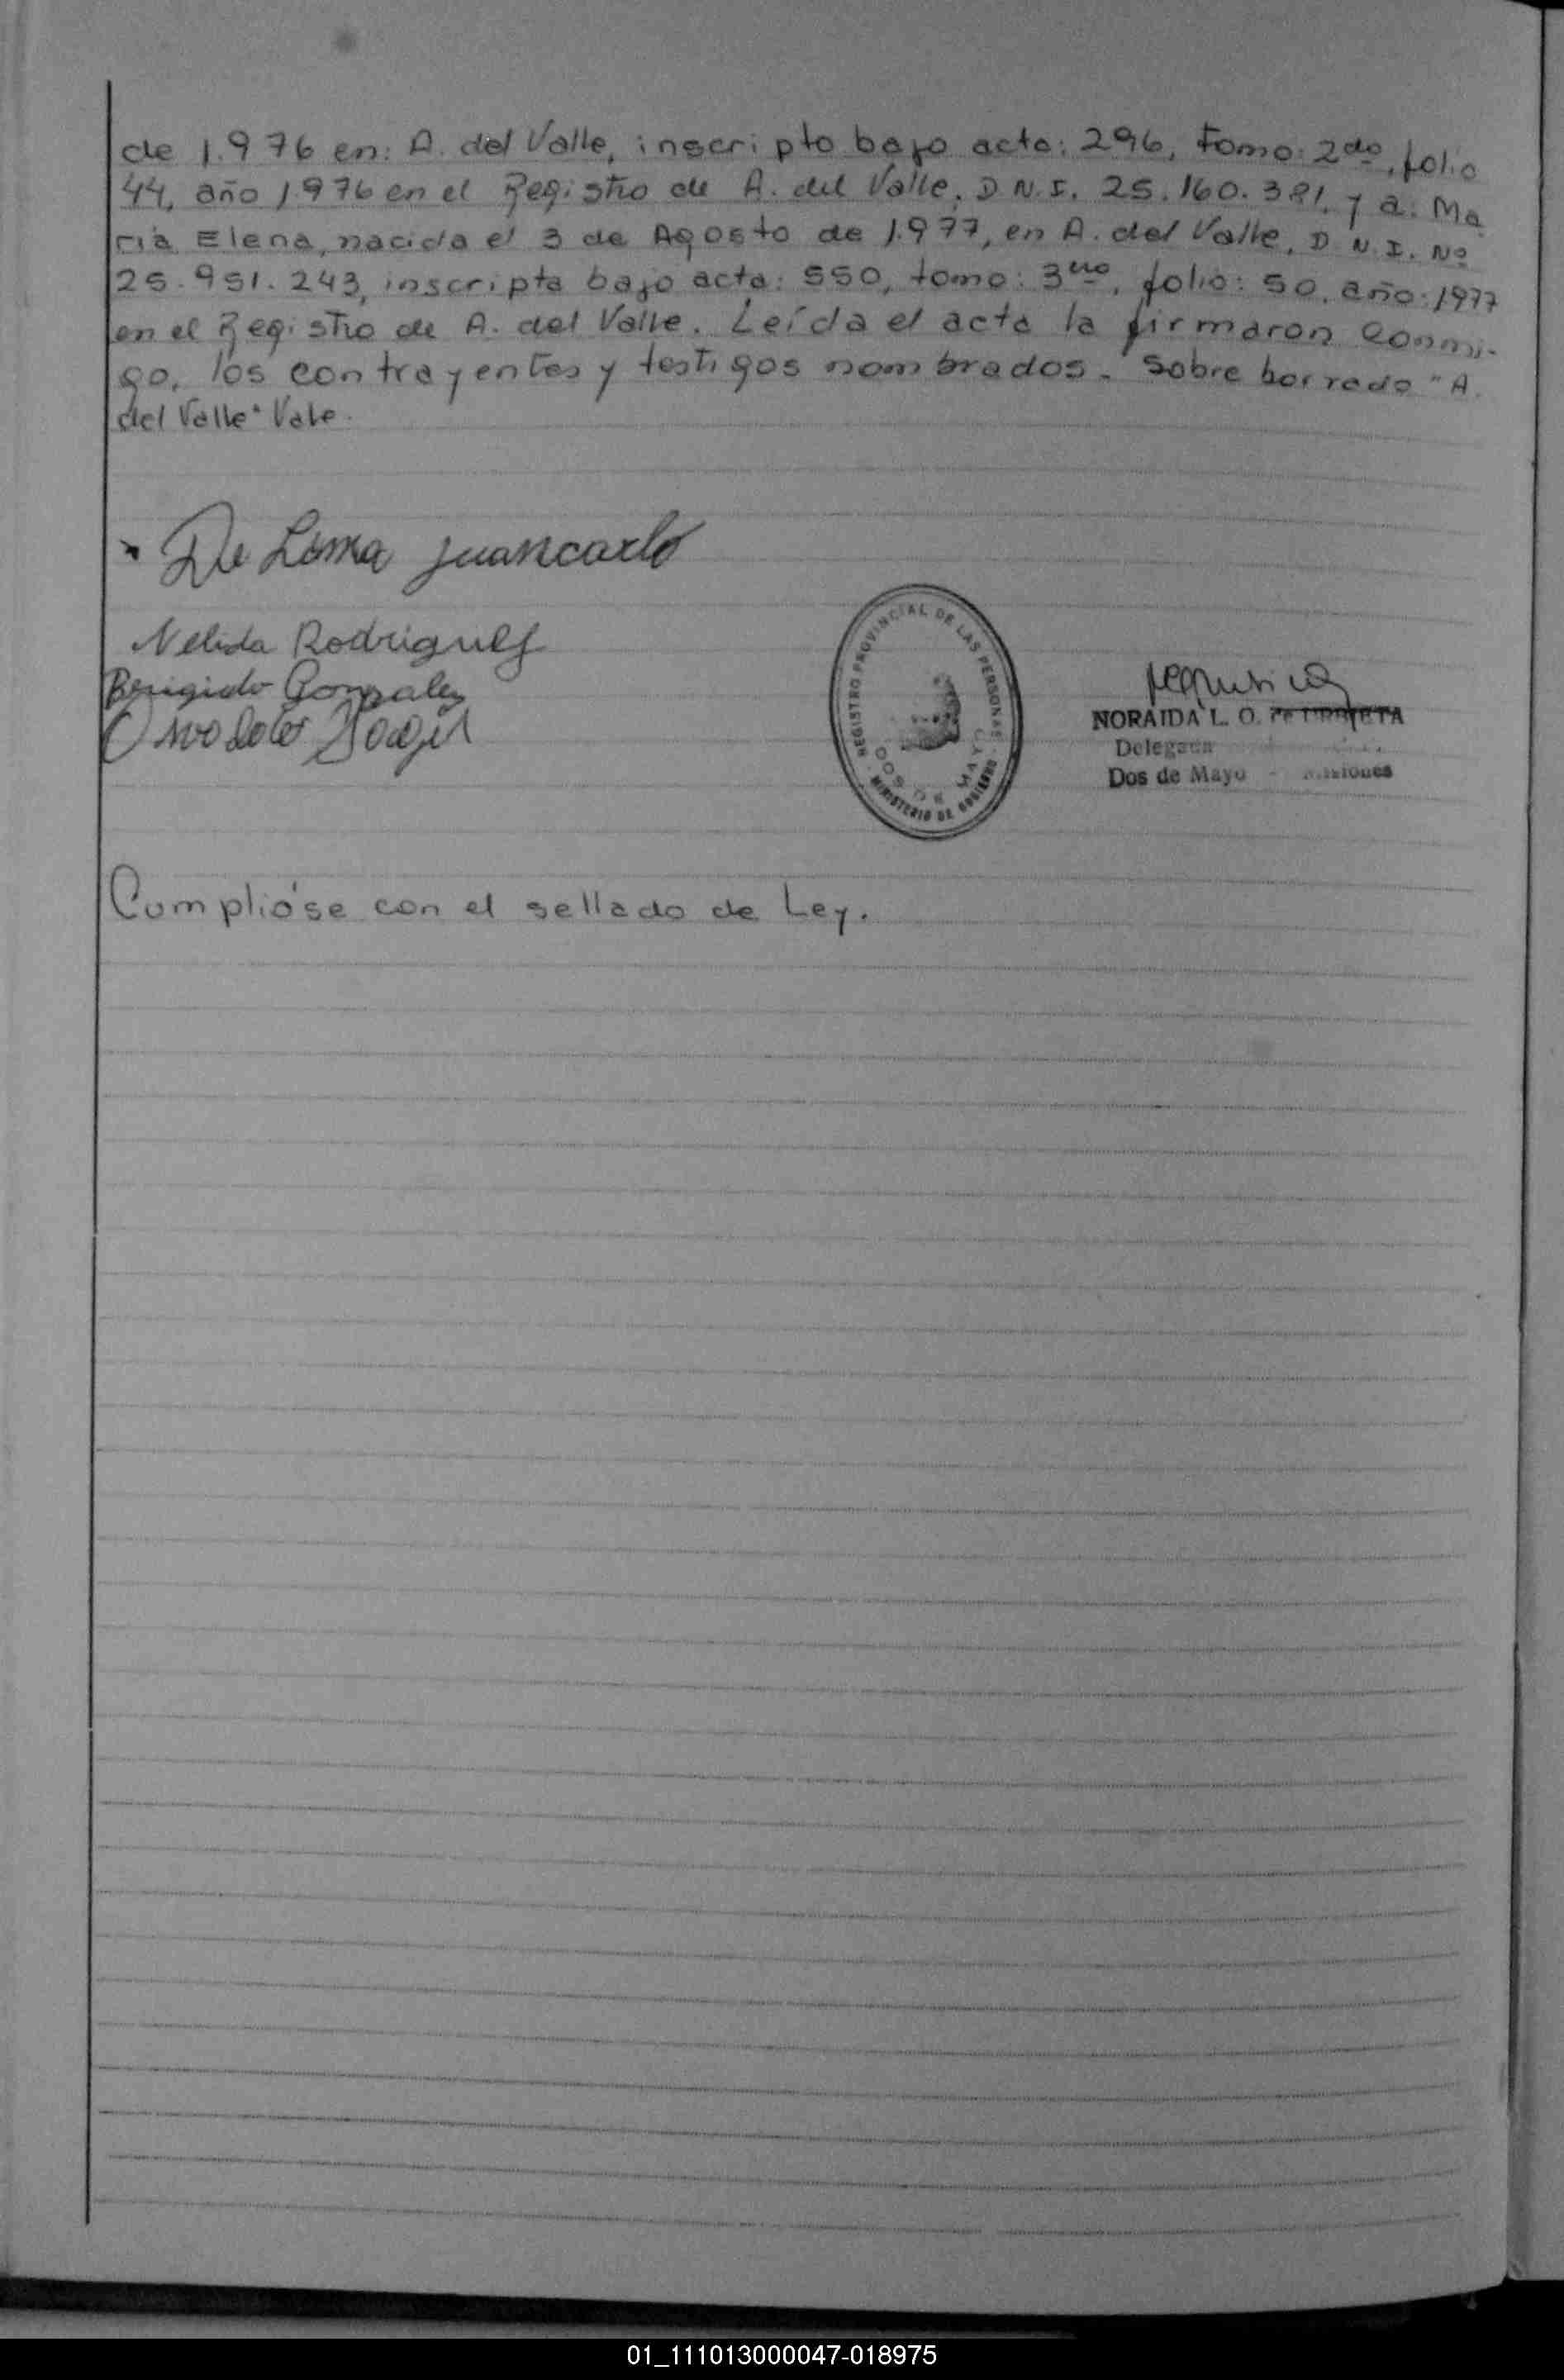 de 1.976 en: A. del Valle, inscripto bajo acta: 296, tomo: 2do, folio
44, año 1.976 en el Registro de A. del Valle, D.N.I. 25.160.381, y a: Ma
ría Elena, nacida el 3 de Agosto de 1.977, en A. del Valle, D.N.I. Nº
25.951.243, inscripta bajo acta: 550, tomo: 3ero, folio: 50, año: 1977
en el Registro de A. del Valle. Leída el acta la firmaron conmi-
go, los contrayentes y testigos nombrados. Sobre borrado "A.
del Valle" Vale.
De Lima juancarlo
Nelida Rodriguez
Berigido Gonzalez
REGISTRO PROVINCIAL DE LAS PERSONAS
DOS DE MAYO
MINISTERIO DE GOBIERNO
NORAIDA L. O.
Delegada
Dos de Mayo - Misiones
Cumplióse con el sellado de Ley.
01_111013000047-018975